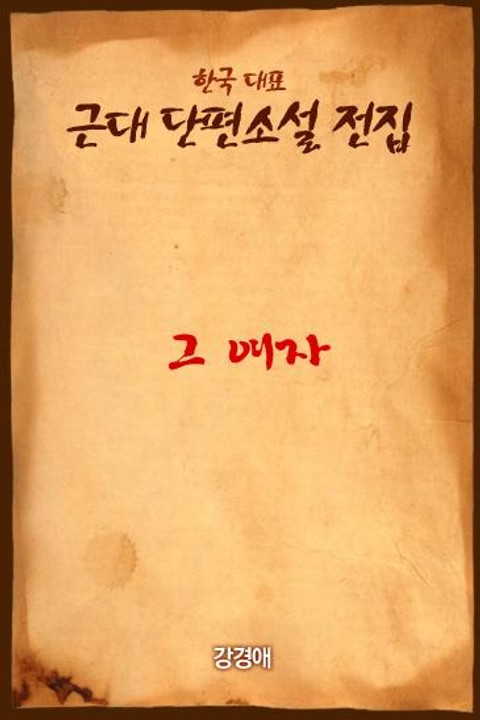 한국 대표
근대 단편소설 전집
그 여자
강경애